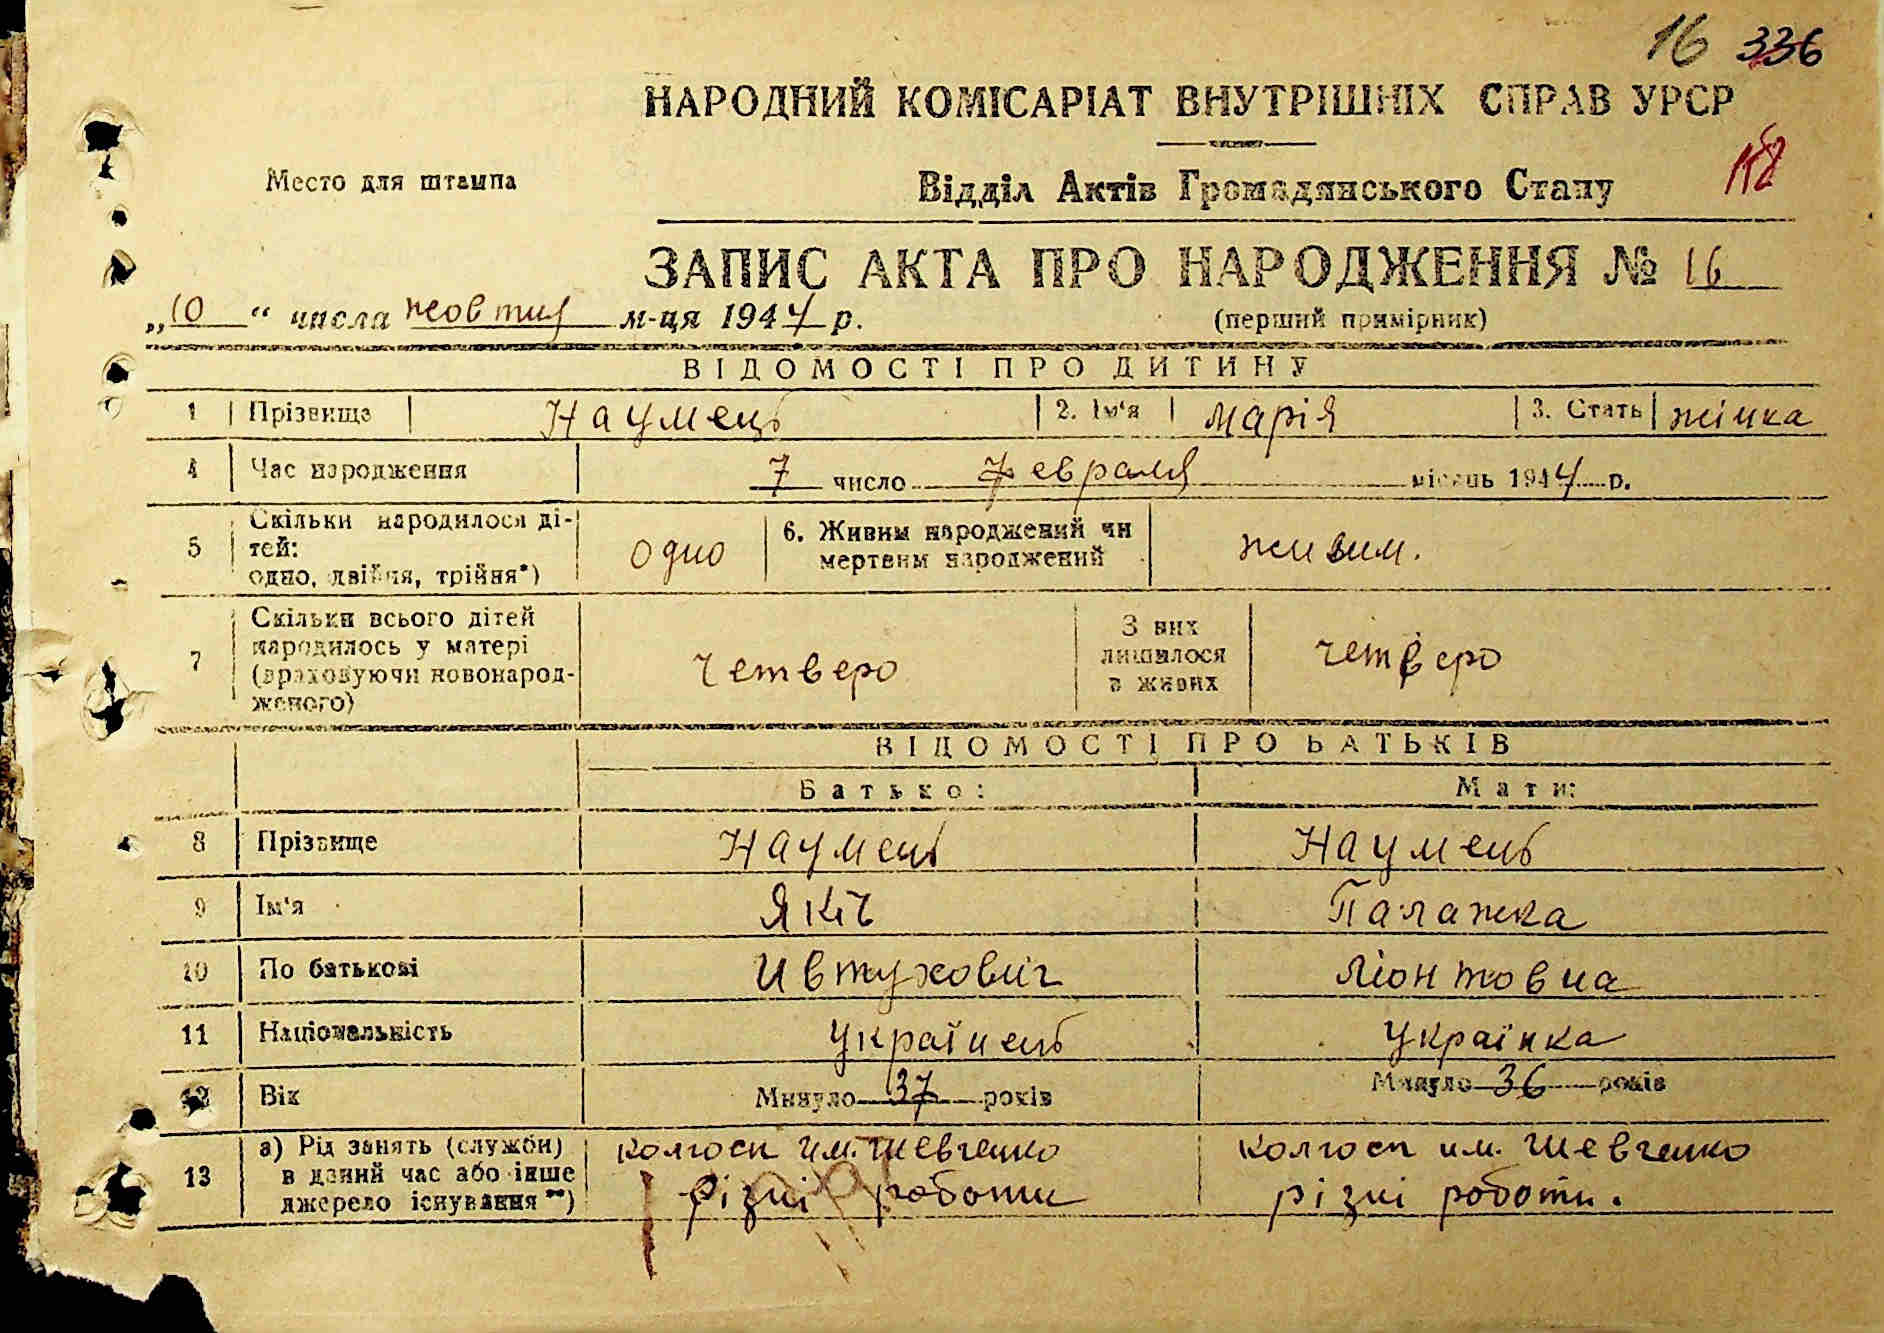 16 336
НАРОДНИЙ КОМІСАРІАТ ВНУТРІШНІХ СПРАВ УРСР
Место для штампа
Відділ Актів Громадянського Стану
ЗАПИС АКТА ПРО НАРОДЖЕННЯ № 16
„10“ числа жовтня м-ця 1944 р.
(перший примірник)
ВІДОМОСТІ ПРО ДИТИНУ
1 Прізвище Наумець 2. Ім'я Марія 3. Стать жінка
4 Час народження 7 число февраля місяць 1944 р.
5 Скільки народилося ді-
тей:
одно, двійня, трійня*) одно
6. Живим народжений чи
мертвим народжений живим.
7 Скільки всього дітей
народилось у матері
(враховуючи новонарод-
женого) четверо
З них
лишилося
в живих четверо
ВІДОМОСТІ ПРО БАТЬКІВ
Батько: Мати:
8 Прізвище Наумець Наумець
9 Ім'я Яків Палажка
10 По батькові Ивтухович Ліонтовна
11 Національність Українець Українка
12 Вік Минуло 37 років Минуло 36 років
13 а) Рід занять (служби)
в даний час або інше
джерело існування **)
колгосп им. Шевченко
різні роботи
колгосп им. Шевченко
різні роботи.